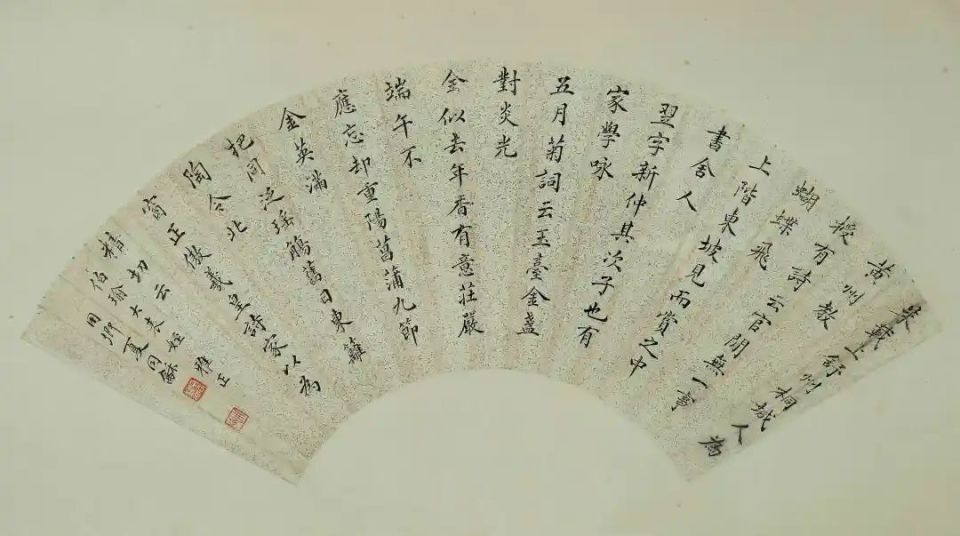 朱載上舒州桐城人為
黃州教
授有詩云官閒無一事
蝴蝶飛
上階東坡見而賞之中
書舍人
翌字新仲其次子也有
家學咏
五月菊詞云玉臺金盞
對炎光
全似去年香有意莊嚴
端午不
應忘却重陽菖蒲九節
金英滿
把同泛瑤觴舊日東籬
陶令北
窗正傲羲皇詩家以為
精切云
伯瑜大表姪雅正
用卿夏同龢